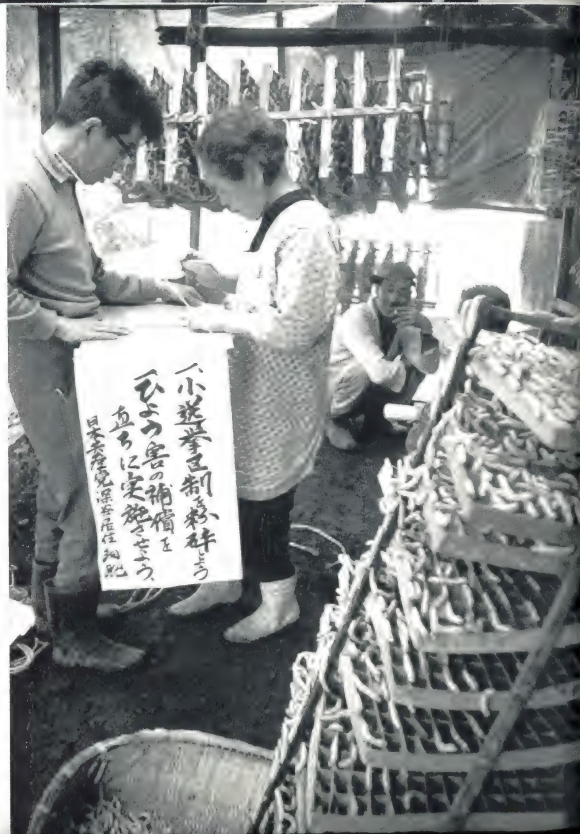 一、小選挙区制を粉砕しよう
一、ひょう害の補償を
直ちに実施させよう、
日本共産党深谷居住細胞